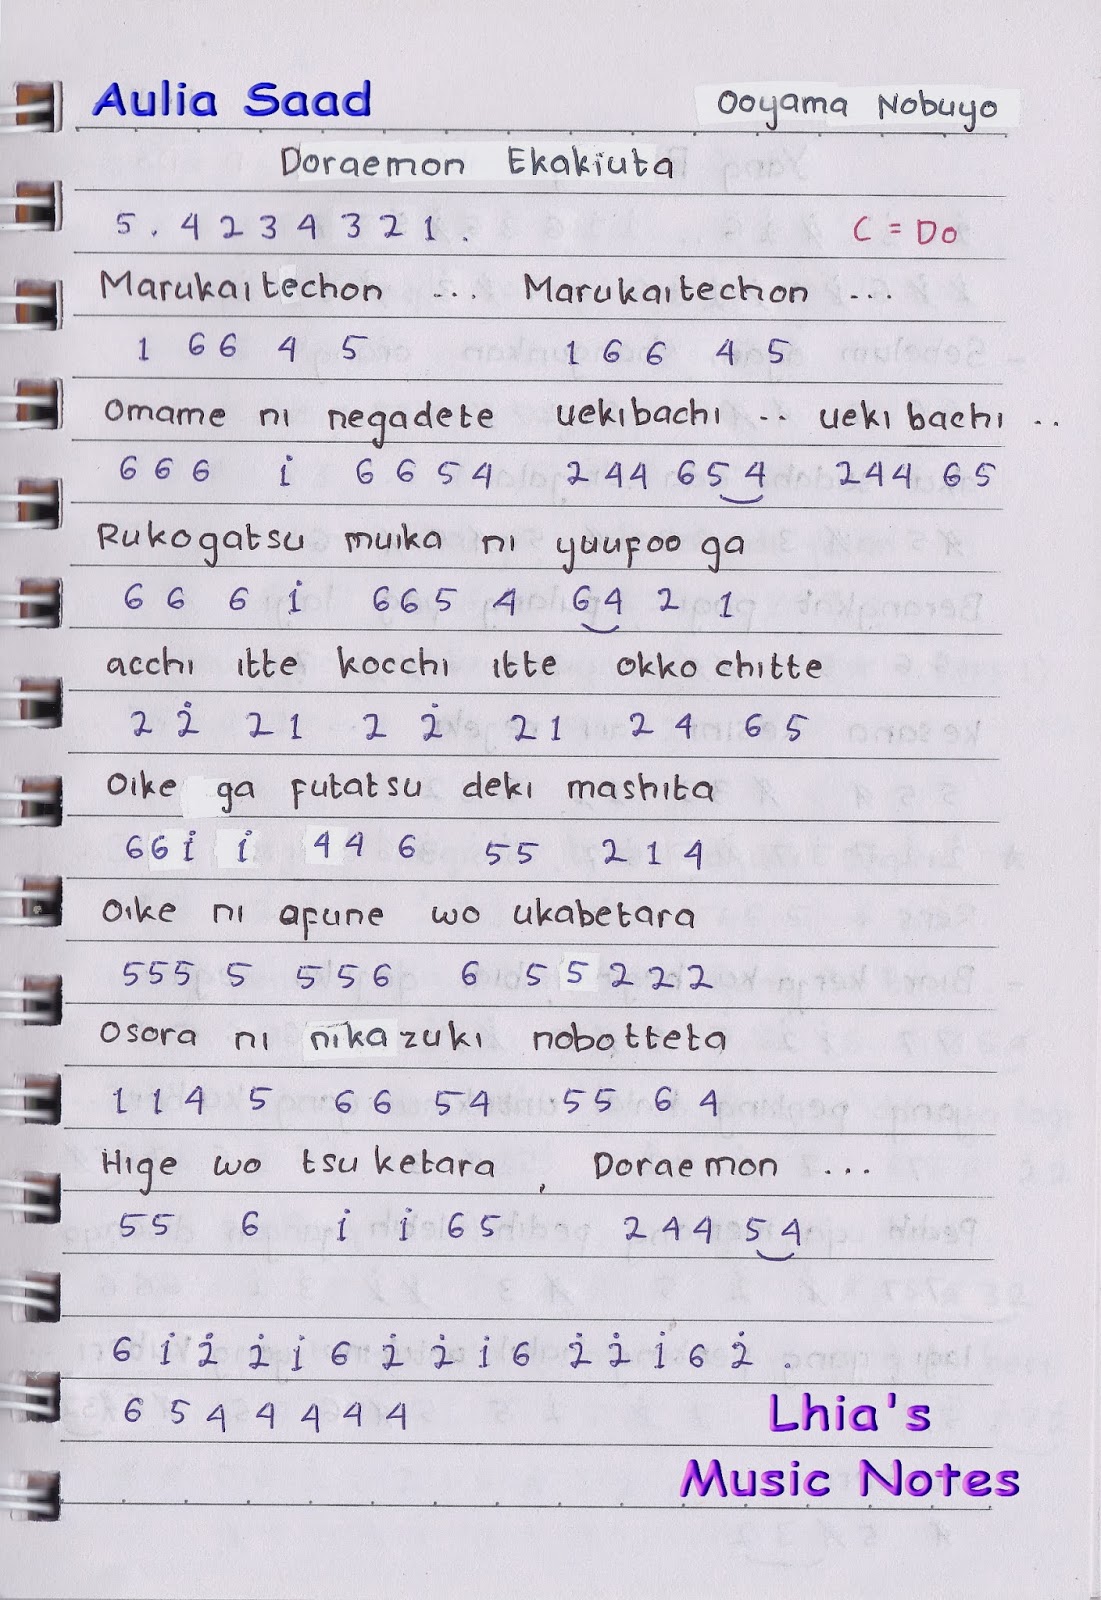 Aulia Saad Ooyama Nobuyo
Doraemon Ekakiuta
5 . 4 2 3 4 3 2 1 . C = Do
Marukaitechon ... Marukaitechon ...
1 6 6 4 5 1 6 6 4 5
Omame ni negadete uekibachi .. ueki bachi ..
6 6 6 i̇ 6 6 5 4 2 4 4 6 5 4 2 4 4 6 5
Rukogatsu muika ni yuufoo ga
6 6 6 i̇ 6 6 5 4 6 4 2 1
acchi itte kocchi itte okko chitte
2 2̇ 2 1 2 2̇ 2 1 2 4 6 5
Oike ga futatsu deki mashita
6 6 i̇ i̇ 4 4 6 5 5 2 1 4
Oike ni afune wo ukabetara
5 5 5 5 5 5 6 6 5 5 2 2 2
Osora ni nikazuki nobotteta
1 1 4 5 6 6 5 4 5 5 6 4
Hige wo tsu ketara , Doraemon ...
5 5 6 i̇ i̇ 6 5 2 4 4 5 4
6 i̇ 2̇ 2̇ i̇ 6 2̇ 2̇ i̇ 6 2̇ 2̇ i̇ 6 2̇ .
6 5 4 4 4 4 4
Lhia's
Music Notes